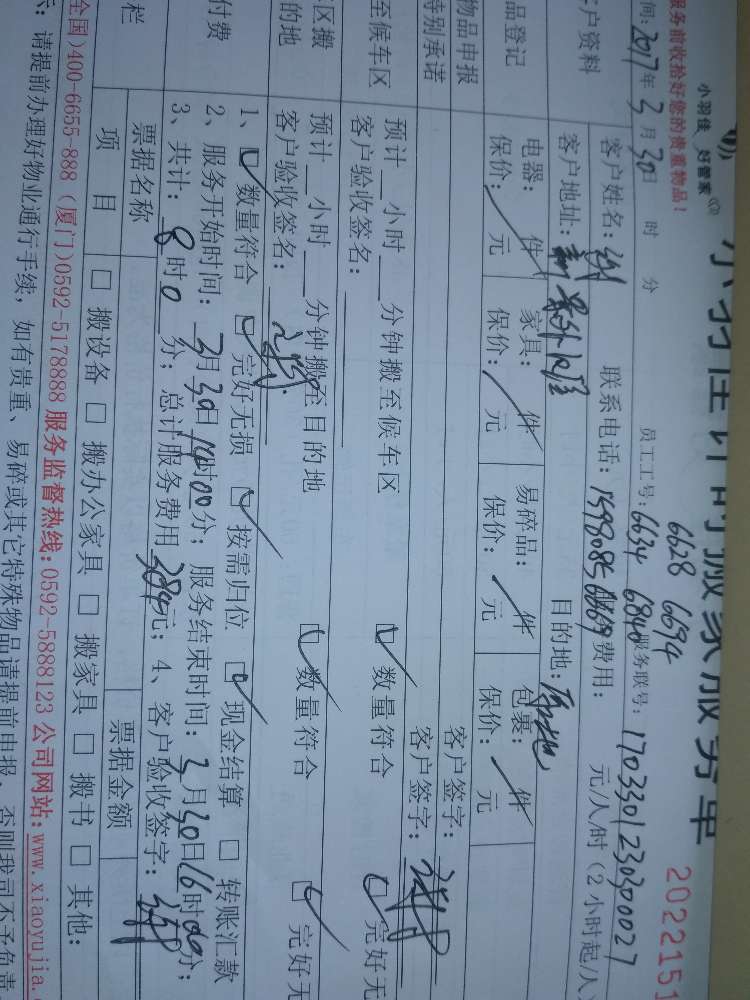 小羽佳 好管家
小羽佳计时搬家服务单
2022151
服务前收拾好您的贵重物品！
6628 6694
间：2017年3月30日 时 分
员工工号：6634 6840
服务联号：1703301230300027
户资料
客户姓名：
联系电话：
费用： 元/人/时（2小时起/人
客户地址：
目的地：
品登记
电器： 件
家具： 件
易碎品： 件
包裹： 件
保价： 元
保价： 元
保价： 元
保价： 元
物品申报
客户签字：
特别承诺
客户签字：
至候车区
预计 小时 分钟搬至候车区
数量符合
完好无
客户验收签名：
区搬
的地
预计 小时 分钟搬至目的地
数量符合
完好无
客户验收签名：
付费
1、 数量符合 完好无损 按需归位 现金结算 转账汇款
2、服务开始时间：3月30日14时00分；服务结束时间：3月30日16时00分；
3、共计：8时0分；总计服务费用384元；4、客户验收签字：
栏
票据名称
票据金额
项 目
搬设备 搬办公家具 搬家具 搬书 其他：
全国)400-6655-888（厦门)0592-5178888 服务监督热线:0592-5888123 公司网站:www.xiaoyujia.
示：请提前办理好物业通行手续，如有贵重、易碎或其它特殊物品请提前申报，否则我司不予负责